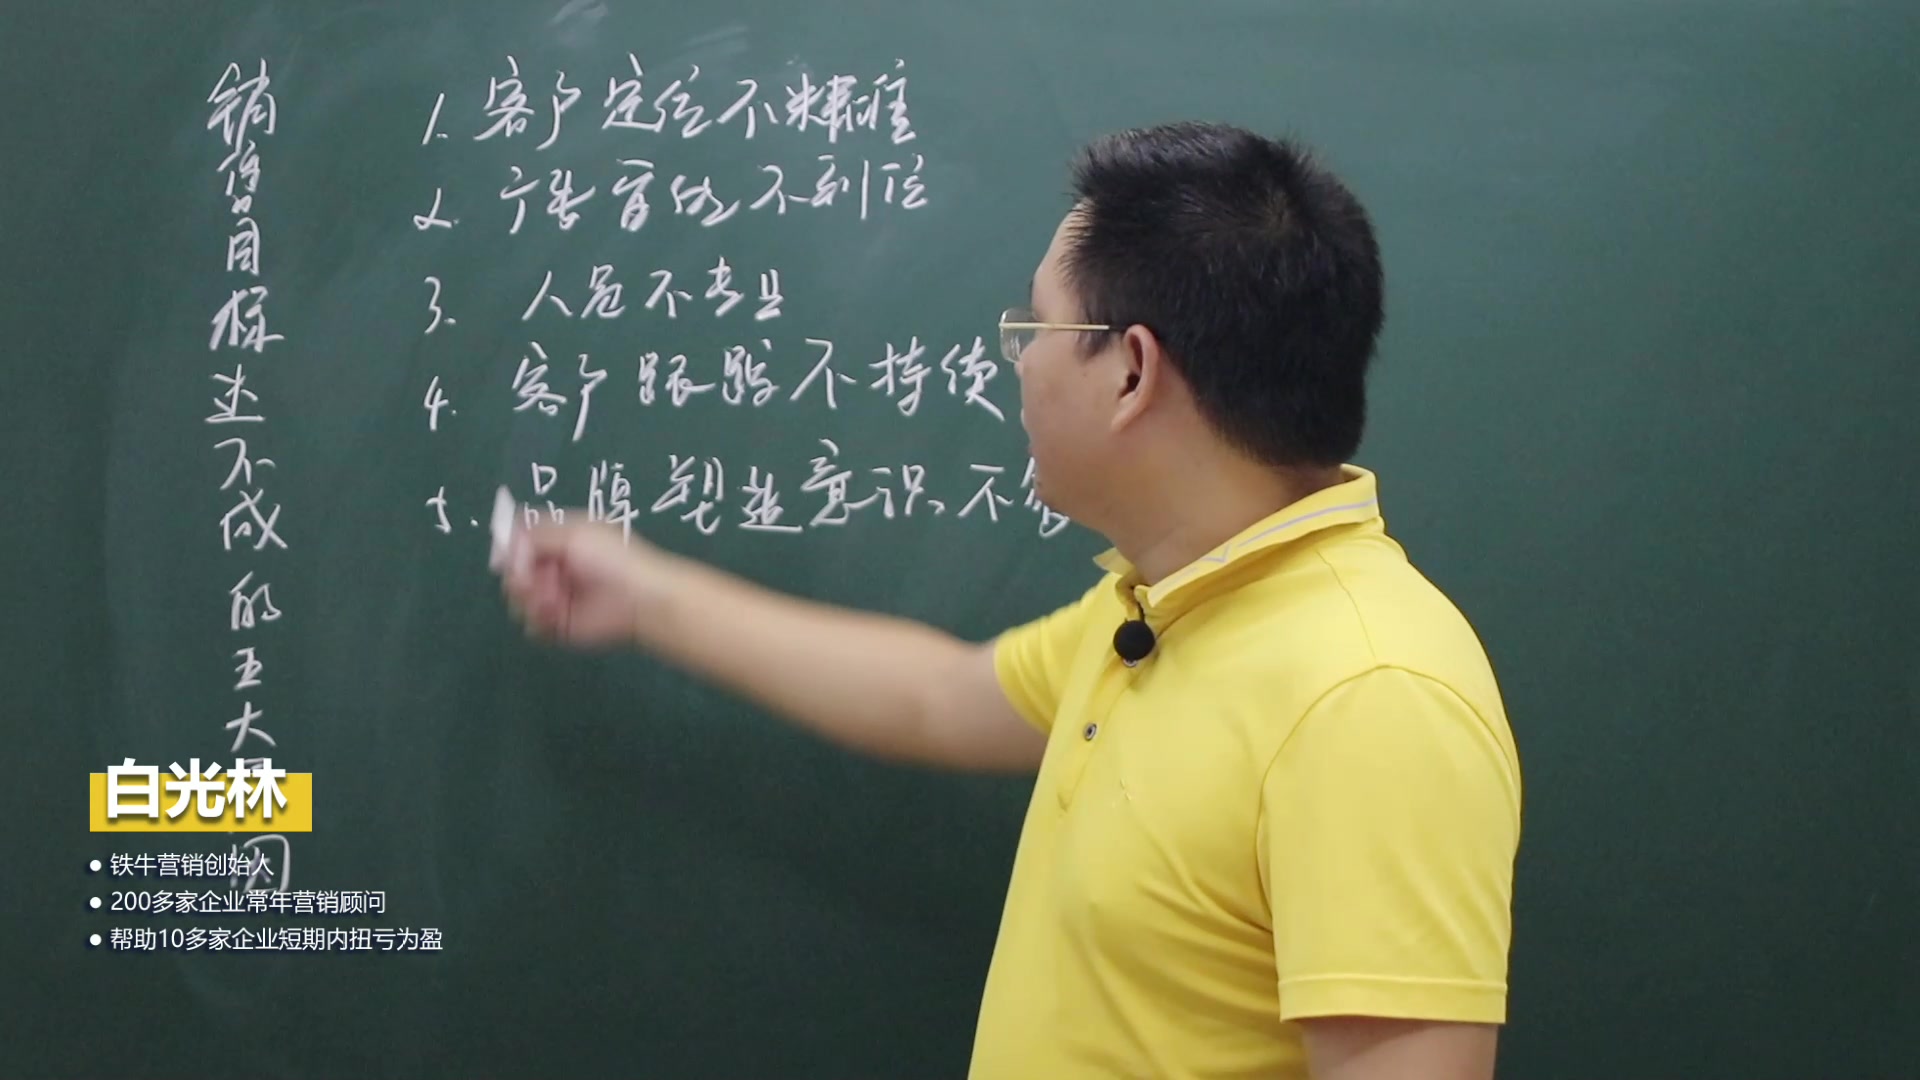 销售目标达不成的五大原因
1. 客户定位不精准
2. 广告宣传不到位
3. 人员不专业
4. 客户跟踪不持续
5. 品牌塑造意识不够
白光林
● 铁牛营销创始人
● 200多家企业常年营销顾问
● 帮助10多家企业短期内扭亏为盈